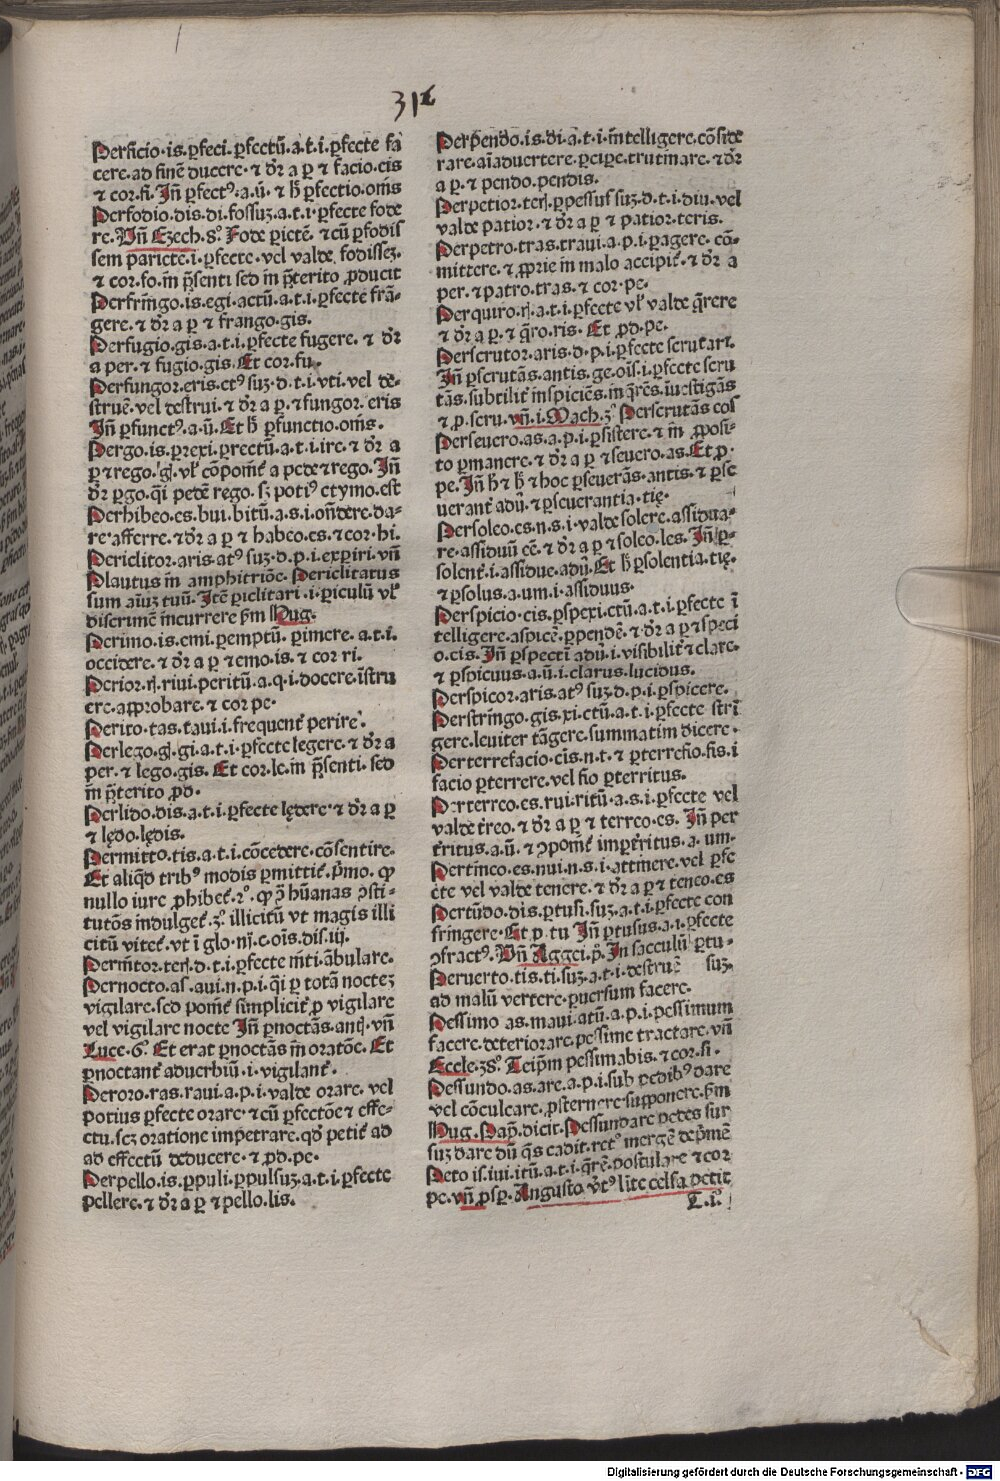 31
Perficio.is.ꝑfeci.ꝑfectū.a.t.i.ꝑfecte fa
cere.ad finē ducere.⁊ dr̄ a ꝑ ⁊ facio.cis
⁊ cor.fi. Jn̄ ꝑfectꝰ.a.ū.⁊ h̄ ꝑfectio.om̄s
Perfodio.dis.di.fossuꝫ.a.t.i.ꝑfecte fode
re. Vn̄ Ezech.8.° Fode ꝑictē.⁊ cū ꝑfodis
sem paricte.i.ꝑfecte.vel valde fodisseꝫ.
⁊ cor.fo.in p̄senti sed in p̄terito ꝓducit
Perfringo.is.egi.actū.a.t.i.ꝑfecte frā-
gere.⁊ dr̄ a ꝑ ⁊ frango.gis.
Perfugio.gis.a.t.i.ꝑfecte fugere.⁊ dr̄
a per.⁊ fugio.gis. Et cor.fu.
Perfungor.eris.ctꝰ suꝫ.d.t.i.vti.vel de-
struē.vel destrui.⁊ dr̄ a ꝑ.⁊ fungor.eris
Jn̄ ꝑfunctꝰ.a.ū. Et h̄ ꝑfunctio.om̄s.
Pergo.is.ꝑrexi.ꝑrectū.a.t.i.ire.⁊ dr̄ a
ꝑ ⁊ rego.gꝭ.vl̓ cōponit̄ a pede ⁊ rego. Jn̄
dr̄ ꝑgo.q̄i pedē rego.sꝫ potiꝰ etymo.est
Perhibeo.es.bui.bitū.a.s.i.on̄dere.da-
re.afferre.⁊ dr̄ a ꝑ ⁊ habeo.es.⁊ cor.hi.
Periclitor.aris.atꝰ suꝫ.d.p.i.experiri.vn̄
Plautus in amphitriōe. Periclitatus
sum aīuꝫ tuū. Itē ꝑiclitari.i.ꝑiculū vl̓
discrimē incurrere ẜm Hug.
Perimo.is.emi.ꝑemptū.ꝑimere.a.t.i.
occidere.⁊ dr̄ a ꝑ ⁊ emo.is.⁊ cor ri.
Perior.rꝭ.riui.peritū.a.q.i.docere.īstru
ere.approbare.⁊ cor pe.
Perito.tas.taui.i.frequent̄ perire.
Perlego.gꝭ.gi.a.t.i.ꝑfecte legere.⁊ dr̄ a
per.⁊ lego.gis. Et cor.le.in p̄senti.sed
in p̄terito ꝓd.
Perlido.dis.a.t.i.ꝑfecte lędere.⁊ dr̄ a ꝑ
⁊ lędo.lędis.
Permitto.tis.a.t.i.cōcedere.cōsentire.
Et aliqd̄ tribꝰ modis ꝑmittit̄.p̄mo.ꝙ
nullo iure ꝓhibet̄.2.° ꝙ ꝯ hūanas ꝯsti-
tutōes indulget̄.3.° illicitū vt magis illi
citū vitet̄.vt ī glo.nꝭ.c.oīs.dis.iij.
Permētor.terꝭ.d.t.i.ꝑfecte mēti.ābulare.
Pernocto.as.aui.n.p.i.q̄i ꝑ totā nocteꝫ
vigilare.sed ponit̄ simplicit̄ ꝓ vigilare
vel vigilare nocte Jn̄ ꝑnoctās.antꝭ.vn̄
Luce.6.° Et erat ꝑnoctās in oratōe. Et
ꝑnoctant̄ aduerbiū.i.vigilant̄.
Peroro.ras.raui.a.p.i.valde orare.vel
potius ꝑfecte orare.⁊ cū ꝑfectōe ⁊ effe-
ctu.scꝫ oratione impetrare.qd̄ petit̄ ad
ad effectū deducere.⁊ ꝓd.pe.
Perpello.is.ꝑpuli.ꝑpulsuꝫ.a.t.i.ꝑfecte
pellere.⁊ dr̄ a ꝑ ⁊ pello.lis.
Perpendo.is.di.a.t.i.intelligere.cōside
rare.aīaduertere.ꝑcipe.trutinare.⁊ dr̄
a ꝑ.⁊ pendo.pendis.
Perpetior.terꝭ.ꝑpessus suꝫ.d.t.i.diu.vel
valde patior.⁊ dr̄ a ꝑ ⁊ patior.teris.
Perpetro.tras.traui.a.p.i.ꝑagere.cō-
mittere.⁊ ꝓprie in malo accipit̄.⁊ dr̄ a
per.⁊ patro.tras.⁊ cor.pe.
Perquiro.rꝭ.a.t.i.ꝑfecte vl̓ valde q̄rere
⁊ dr̄ a ꝑ.⁊ q̄ro.ris. Et ꝓd.pe.
Perscrutor.aris.d.p.i.ꝑfecte scrutari.
Jn̄ ꝑscrutās.antis.ge.oīs.i.ꝑfecte scru
tās.subtilit̄ inspiciēs.inq̄rēs.īuestigās
⁊ ꝓ.scru.vn̄.i.Mach.3.° Perscrutās cos
Perseuero.as.a.p.i.ꝑsistere.⁊ in ꝓposi-
to ꝑmanere.⁊ dr̄ a ꝑ ⁊ seuero.as. Et ꝓ.
pe. Jn̄ h̄ ⁊ h̄ ⁊ hoc ꝑseuerās.antis.⁊ ꝑse
uerant̄ adū.⁊ ꝑseuerantia.tię.
Persoleo.es.n.s.i.valde solere.assidua-
re.assiduū eē.⁊ dr̄ a ꝑ ⁊ soleo.les. Jn̄ ꝑ-
solent̄.i.assidue.adū. Et h̄ ꝑsolentia.tię.
⁊ ꝑsolus.a.um.i.assiduus.
Perspicio.cis.ꝑspexi.ctū.a.t.i.ꝑfecte ī
telligere.aspicē.ꝑpendē.⁊ dr̄ a ꝑ ⁊ speci
o.cis. Jn̄ ꝑspectī adū.i.visibilit̄ ⁊ clare.
⁊ ꝑspicuus.a.ū.i.clarus.lucidus.
Perspicor.aris.atꝰ suꝫ.d.p.i.ꝑspicere.
Perstringo.gis.xi.ctū.a.t.i.ꝑfecte strī
gere.leuiter tāgere.summatim dicere.
Perterrefacio.cis.n.t.⁊ ꝑterrefio.fis.i
facio ꝑterrere.vel fio ꝑterritus.
Perterreo.es.rui.ritū.a.s.i.ꝑfecte vel
valde t̄reo.⁊ dr̄ a ꝑ ⁊ terreo.es. Jn̄ per
t̄ritus.a.ū.⁊ ꝯponit̄ imꝑt̄ritus.a.um.
Pertineo.es.nui.n.s.i.attinere.vel ꝑfe
cte vel valde tenere.⁊ dr̄ a ꝑ ⁊ teneo.es
Pertūdo.dis.ꝑtusi.suꝫ.a.t.i.ꝑfecte con
fringere. Et ꝓ.tu Jn̄ ꝑtusus.a.i.ꝑfecte
ꝯfractꝰ. Vn̄ Aggei.p̄. Jn sacculū ꝑtu-
Peruerto.tis.ti.suꝫ.a.t.i.destruē suꝫ.
ad malū vertere.ꝑuersum facere.
Pessimo as.maui.atū.a.p.i.pessimum
facere.deteriorare.pessime tractare.vn̄
Eccle.38.° Teip̄m pessimabis.⁊ cor.si.
Pessundo.as.are.a.p.i.sub pedibꝰ dare
vel cōculcare.ꝓsternere.supponere.ẜm
Hug. Pap̄.dicit. Pessundare pedes sur
suꝫ dare dū q̄s cadit.retꝰ mergē dep̄mē
Peto is.iui.itū.a.t.i.q̄rē.postulare ⁊ cor
pe.vn̄ ꝓsꝑ. Angusto v̄tꝰ lite celsa petit
T.ij.
Digitalisierung gefördert durch die Deutsche Forschungsgemeinschaft - DFG